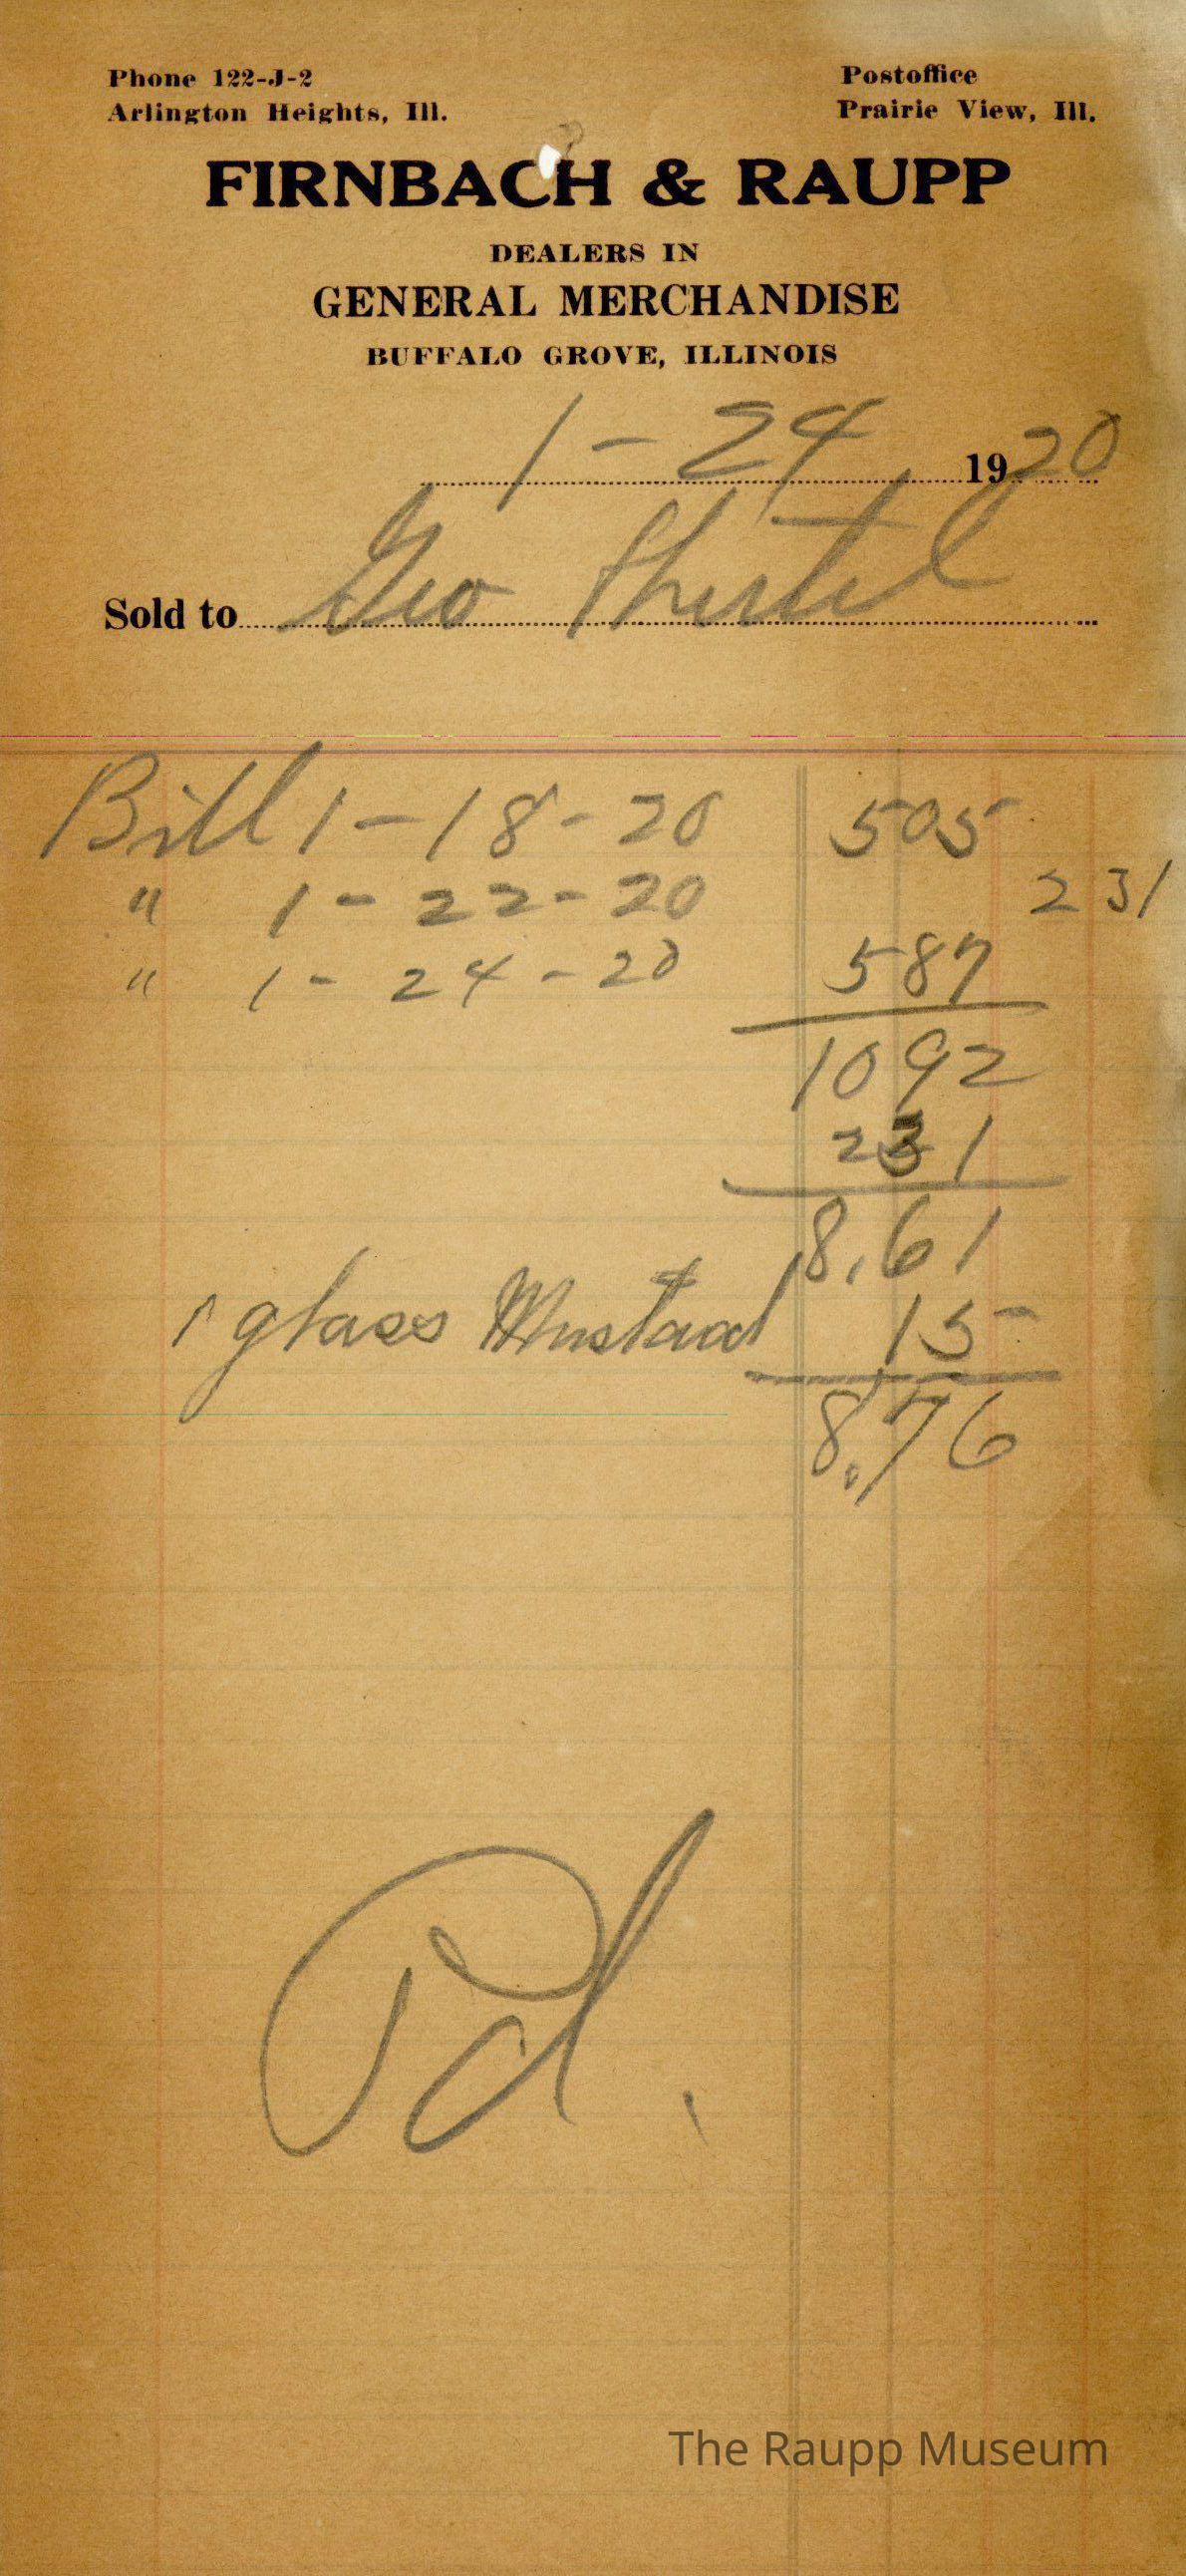 Phone 122-J-2
Arlington Heights, Ill.
Postoffice
Prairie View, Ill.
FIRNBACH & RAUPP
DEALERS IN
GENERAL MERCHANDISE
BUFFALO GROVE, ILLINOIS
1-24 1920
Sold to Geo
Bill 1-18-20 505
" 1-22-20 231
" 1-24-20 587
1092
231
8.61
1 glass Mustard 15
8.76
Pd.
The Raupp Museum